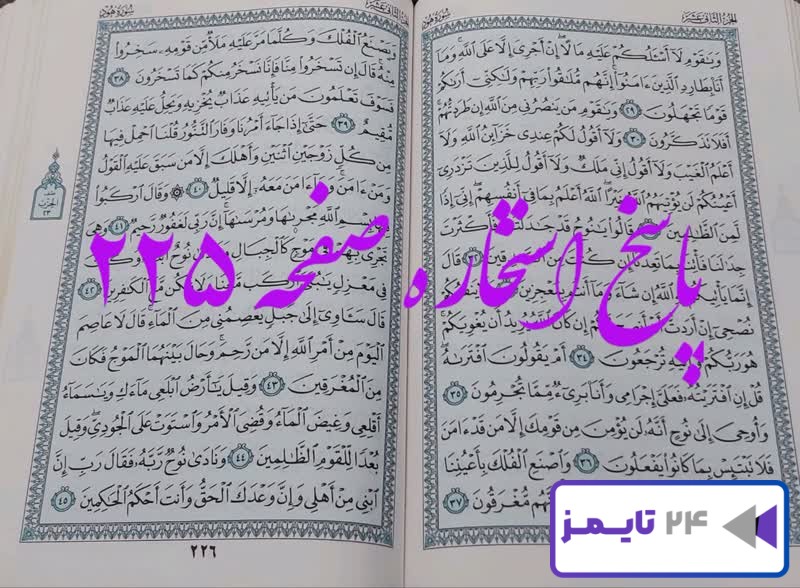 الجزء الثاني عشر
سورة هود
وَيَٰقَوْمِ لَآ أَسْـَٔلُكُمْ عَلَيْهِ مَالًا إِنْ أَجْرِىَ إِلَّا عَلَى ٱللَّهِ وَمَآ
أَنَا۠ بِطَارِدِ ٱلَّذِينَ ءَامَنُوٓا۟ إِنَّهُم مُّلَٰقُوا۟ رَبِّهِمْ وَلَٰكِنِّىٓ أَرَىٰكُمْ
قَوْمًا تَجْهَلُونَ ٢٩ وَيَٰقَوْمِ مَن يَنصُرُنِى مِنَ ٱللَّهِ إِن طَرَدتُّهُمْ
أَفَلَا تَذَكَّرُونَ ٣٠ وَلَآ أَقُولُ لَكُمْ عِندِى خَزَآئِنُ ٱللَّهِ وَلَآ
أَعْلَمُ ٱلْغَيْبَ وَلَآ أَقُولُ إِنِّى مَلَكٌ وَلَآ أَقُولُ لِلَّذِينَ تَزْدَرِىٓ
أَعْيُنُكُمْ لَن يُؤْتِيَهُمُ ٱللَّهُ خَيْرًا ٱللَّهُ أَعْلَمُ بِمَا فِىٓ أَنفُسِهِمْ إِنِّىٓ إِذًا
لَّمِنَ ٱلظَّٰلِمِينَ قَالُوا۟ يَٰنُوحُ قَدْ جَٰدَلْتَنَا فَأَكْثَرْتَ
جِدَٰلَنَا فَأْتِنَا بِمَا تَعِدُنَآ إِن كُنتَ مِنَ ٱلصَّٰدِقِينَ ٣٢ قَالَ
إِنَّمَا يَأْتِيكُم بِهِ ٱللَّهُ إِن شَآءَ وَمَآ أَنتُم بِمُعْجِزِينَ يَنفَعُكُمْ
نُصْحِىٓ إِنْ أَرَدتُّ أَنْ أَنصَحَ لَكُمْ إِن كَانَ ٱللَّهُ يُرِيدُ أَن يُغْوِيَكُمْ
هُوَ رَبُّكُمْ وَإِلَيْهِ تُرْجَعُونَ ٣٤ أَمْ يَقُولُونَ ٱفْتَرَىٰهُ
قُلْ إِنِ ٱفْتَرَيْتُهُۥ فَعَلَىَّ إِجْرَامِى وَأَنَا۠ بَرِىٓءٌ مِّمَّا تُجْرِمُونَ ٣٥
وَأُوحِىَ إِلَىٰ نُوحٍ أَنَّهُۥ لَن يُؤْمِنَ مِن قَوْمِكَ إِلَّا مَن قَدْ ءَامَنَ
فَلَا تَبْتَئِسْ بِمَا كَانُوا۟ يَفْعَلُونَ ٣٦ وَٱصْنَعِ ٱلْفُلْكَ بِأَعْيُنِنَا
إِنَّهُم مُّغْرَقُونَ ٣٧
الجزء الثاني عشر
سورة هود
وَيَصْنَعُ ٱلْفُلْكَ وَكُلَّمَا مَرَّ عَلَيْهِ مَلَأٌ مِّن قَوْمِهِۦ سَخِرُوا۟
مِنْهُ قَالَ إِن تَسْخَرُوا۟ مِنَّا فَإِنَّا نَسْخَرُ مِنكُمْ كَمَا تَسْخَرُونَ ٣٨
فَسَوْفَ تَعْلَمُونَ مَن يَأْتِيهِ عَذَابٌ يُخْزِيهِ وَيَحِلُّ عَلَيْهِ عَذَابٌ
مُّقِيمٌ ٣٩ حَتَّىٰٓ إِذَا جَآءَ أَمْرُنَا وَفَارَ ٱلتَّنُّورُ قُلْنَا ٱحْمِلْ فِيهَا
مِن كُلٍّ زَوْجَيْنِ ٱثْنَيْنِ وَأَهْلَكَ إِلَّا مَن سَبَقَ عَلَيْهِ ٱلْقَوْلُ
وَمَنْ ءَامَنَ وَمَآ ءَامَنَ مَعَهُۥٓ إِلَّا قَلِيلٌ ٤٠ ۞ وَقَالَ ٱرْكَبُوا۟
فِيهَا بِسْمِ ٱللَّهِ مَجْر۪ىٰهَا وَمُرْسَىٰهَآ إِنَّ رَبِّى لَغَفُورٌ رَّحِيمٌ ٤١ وَهِىَ
تَجْرِى بِهِمْ فِى مَوْجٍ كَٱلْجِبَالِ وَنَادَىٰ نُوحٌ ٱبْنَهُۥ وَكَانَ
فِى مَعْزِلٍ يَٰبُنَىَّ ٱرْكَب مَّعَنَا وَلَا تَكُن مَّعَ ٱلْكَٰفِرِينَ ٤٢
قَالَ سَـَٔاوِىٓ إِلَىٰ جَبَلٍ يَعْصِمُنِى مِنَ ٱلْمَآءِ قَالَ لَا عَاصِمَ
ٱلْيَوْمَ مِنْ أَمْرِ ٱللَّهِ إِلَّا مَن رَّحِمَ وَحَالَ بَيْنَهُمَا ٱلْمَوْجُ فَكَانَ
مِنَ ٱلْمُغْرَقِينَ ٤٣ وَقِيلَ يَٰٓأَرْضُ ٱبْلَعِى مَآءَكِ وَيَٰسَمَآءُ
أَقْلِعِى وَغِيضَ ٱلْمَآءُ وَقُضِىَ ٱلْأَمْرُ وَٱسْتَوَتْ عَلَى ٱلْجُودِىِّ وَقِيلَ
بُعْدًا لِّلْقَوْمِ ٱلظَّٰلِمِينَ ٤٤ وَنَادَىٰ نُوحٌ رَّبَّهُۥ فَقَالَ رَبِّ إِنَّ
ٱبْنِى مِنْ أَهْلِى وَإِنَّ وَعْدَكَ ٱلْحَقُّ وَأَنتَ أَحْكَمُ ٱلْحَٰكِمِينَ ٤٥
٢٢٦
الحزب
٢٣
پاسخ استخاره صفحه ۲۲۵
۲۴ تایمز